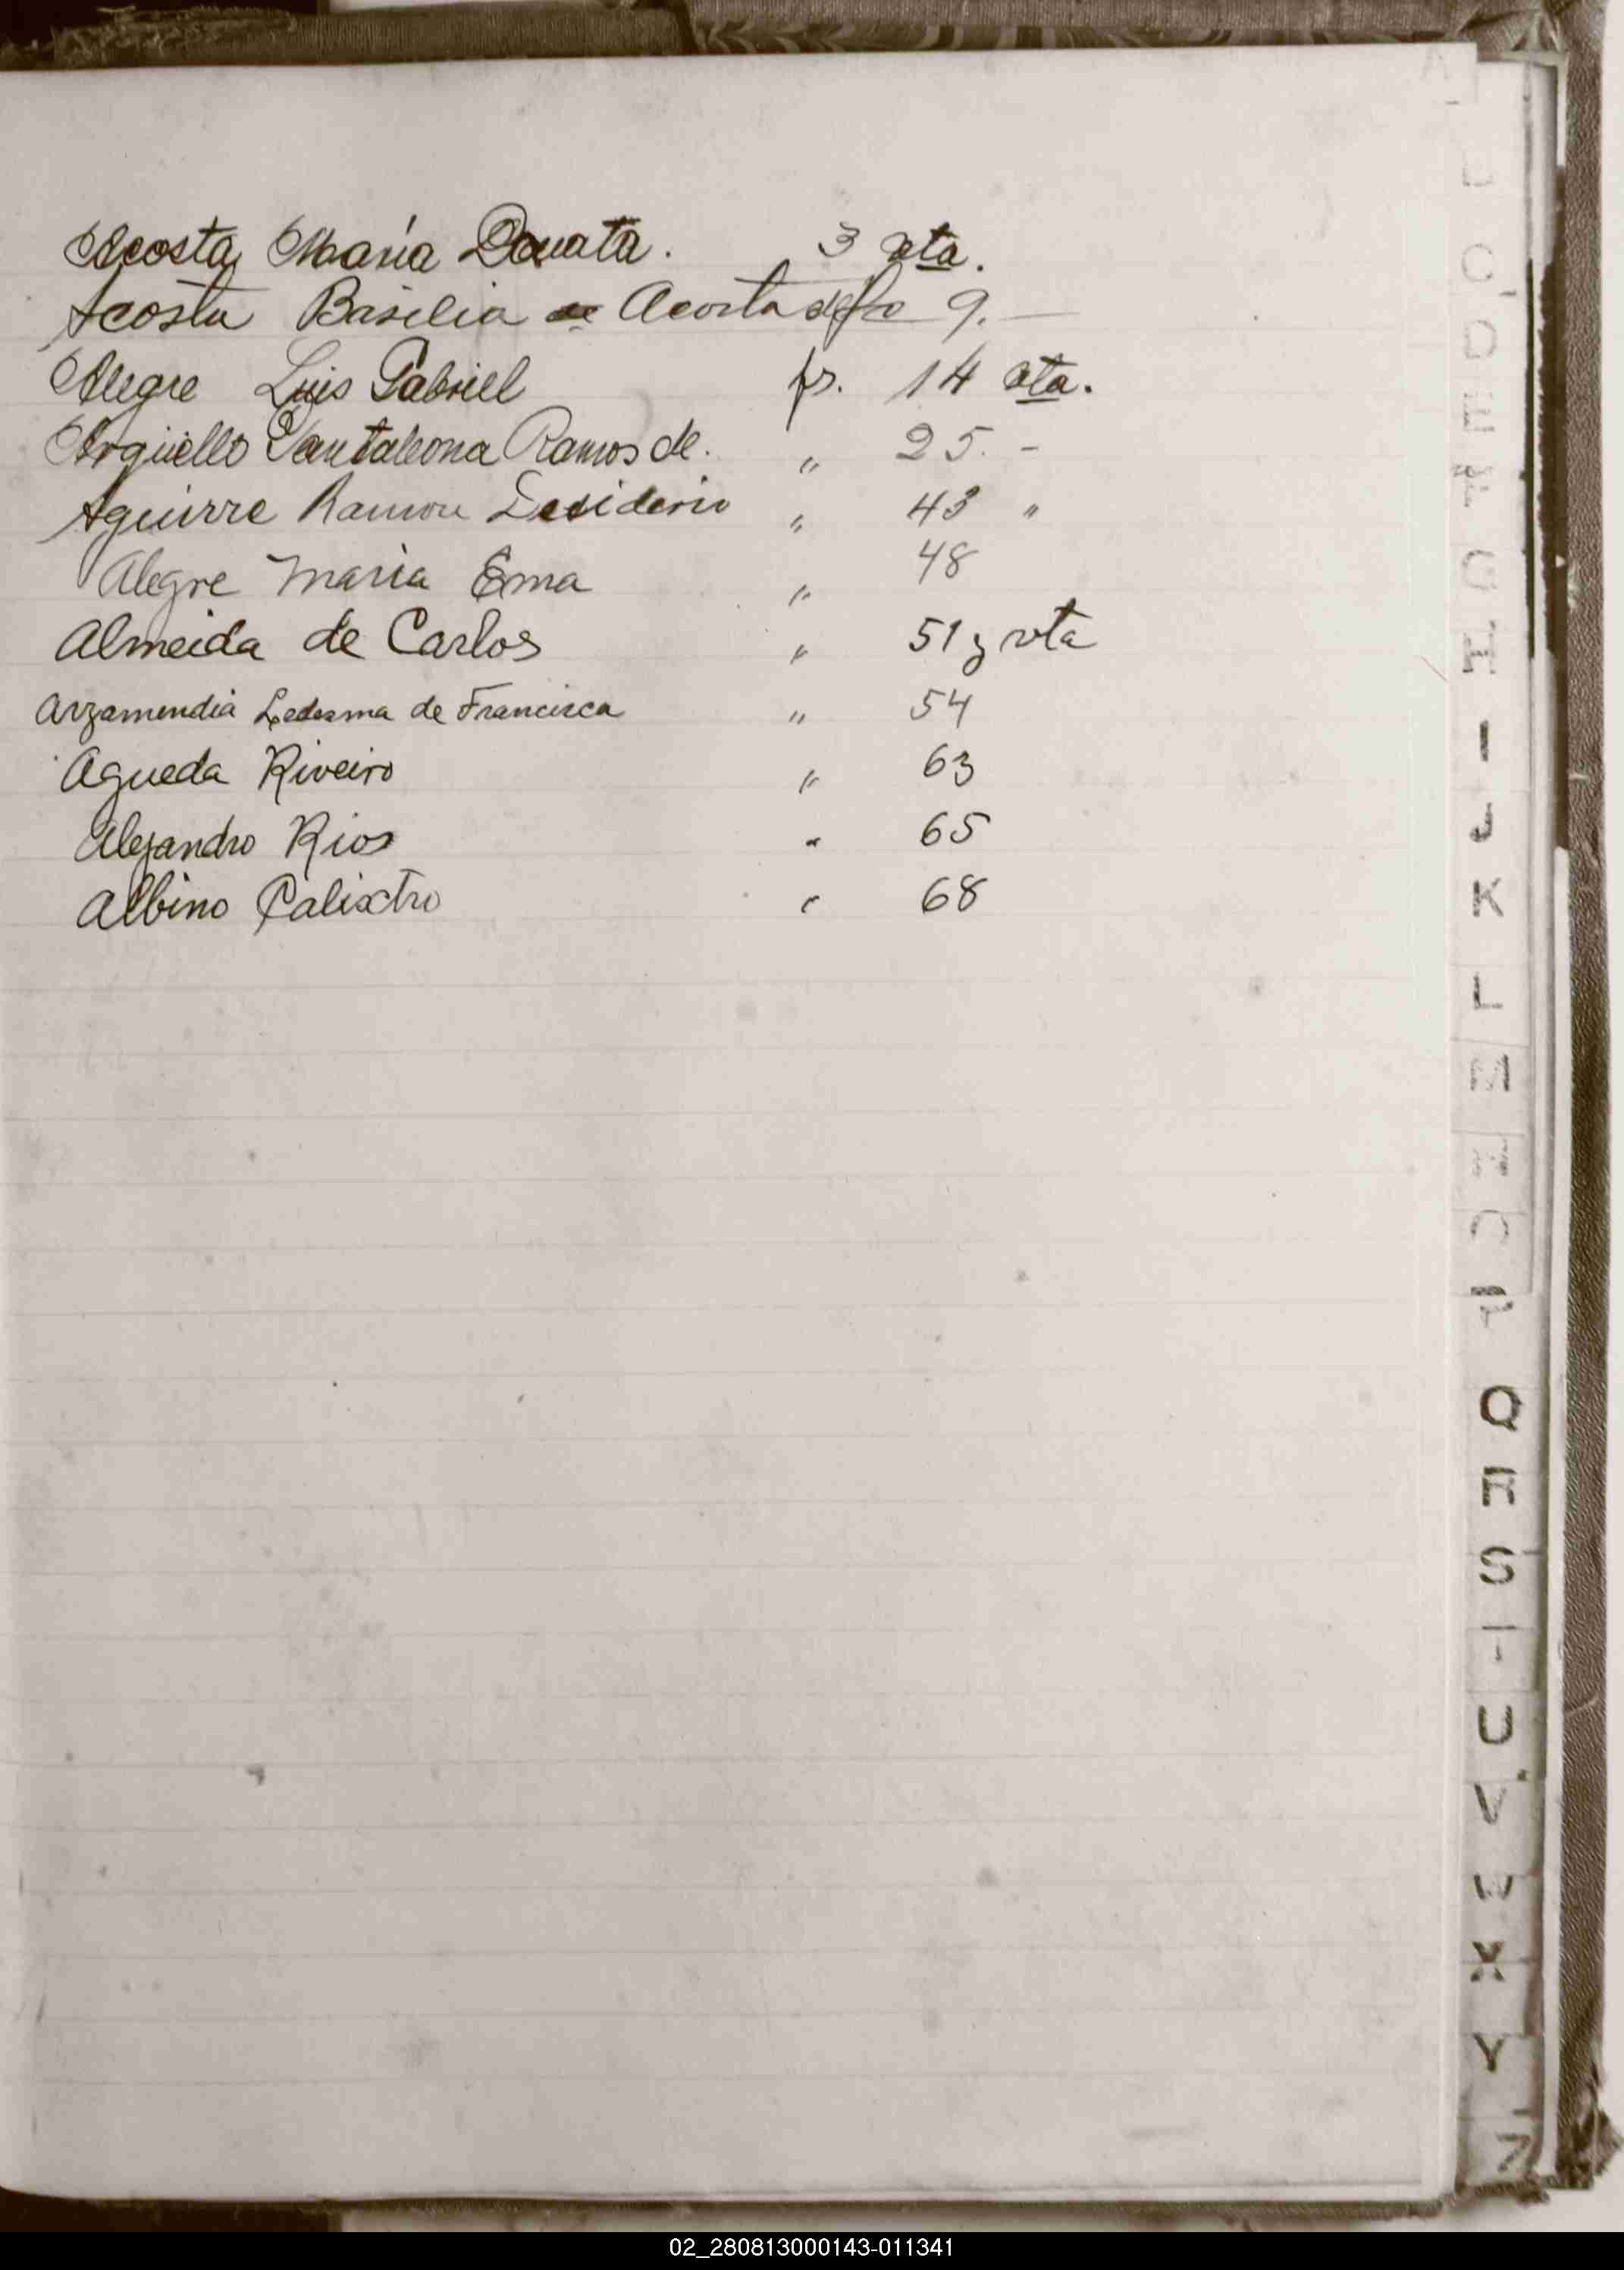 Acosta, María Donata. 3 vta.
Acosta Basilia de Acosta de fo 9. —
Alegre Luis Gabriel fs. 14 vta.
Argüello Pantaleona Ramos de. " 25. -
Aguirre Ramon Desiderio " 43 "
Alegre Maria Ema " 48
Almeida de Carlos " 51 y vta
Arzamendia Ledesma de Francisca " 54
Agueda Riveiro " 63
Alejandro Rios " 65
Albino Calixtro " 68
C
D
E
F
G
H
I
J
K
L
M
N
O
P
Q
R
S
T
U
V
W
X
Y
Z
02_280813000143-011341